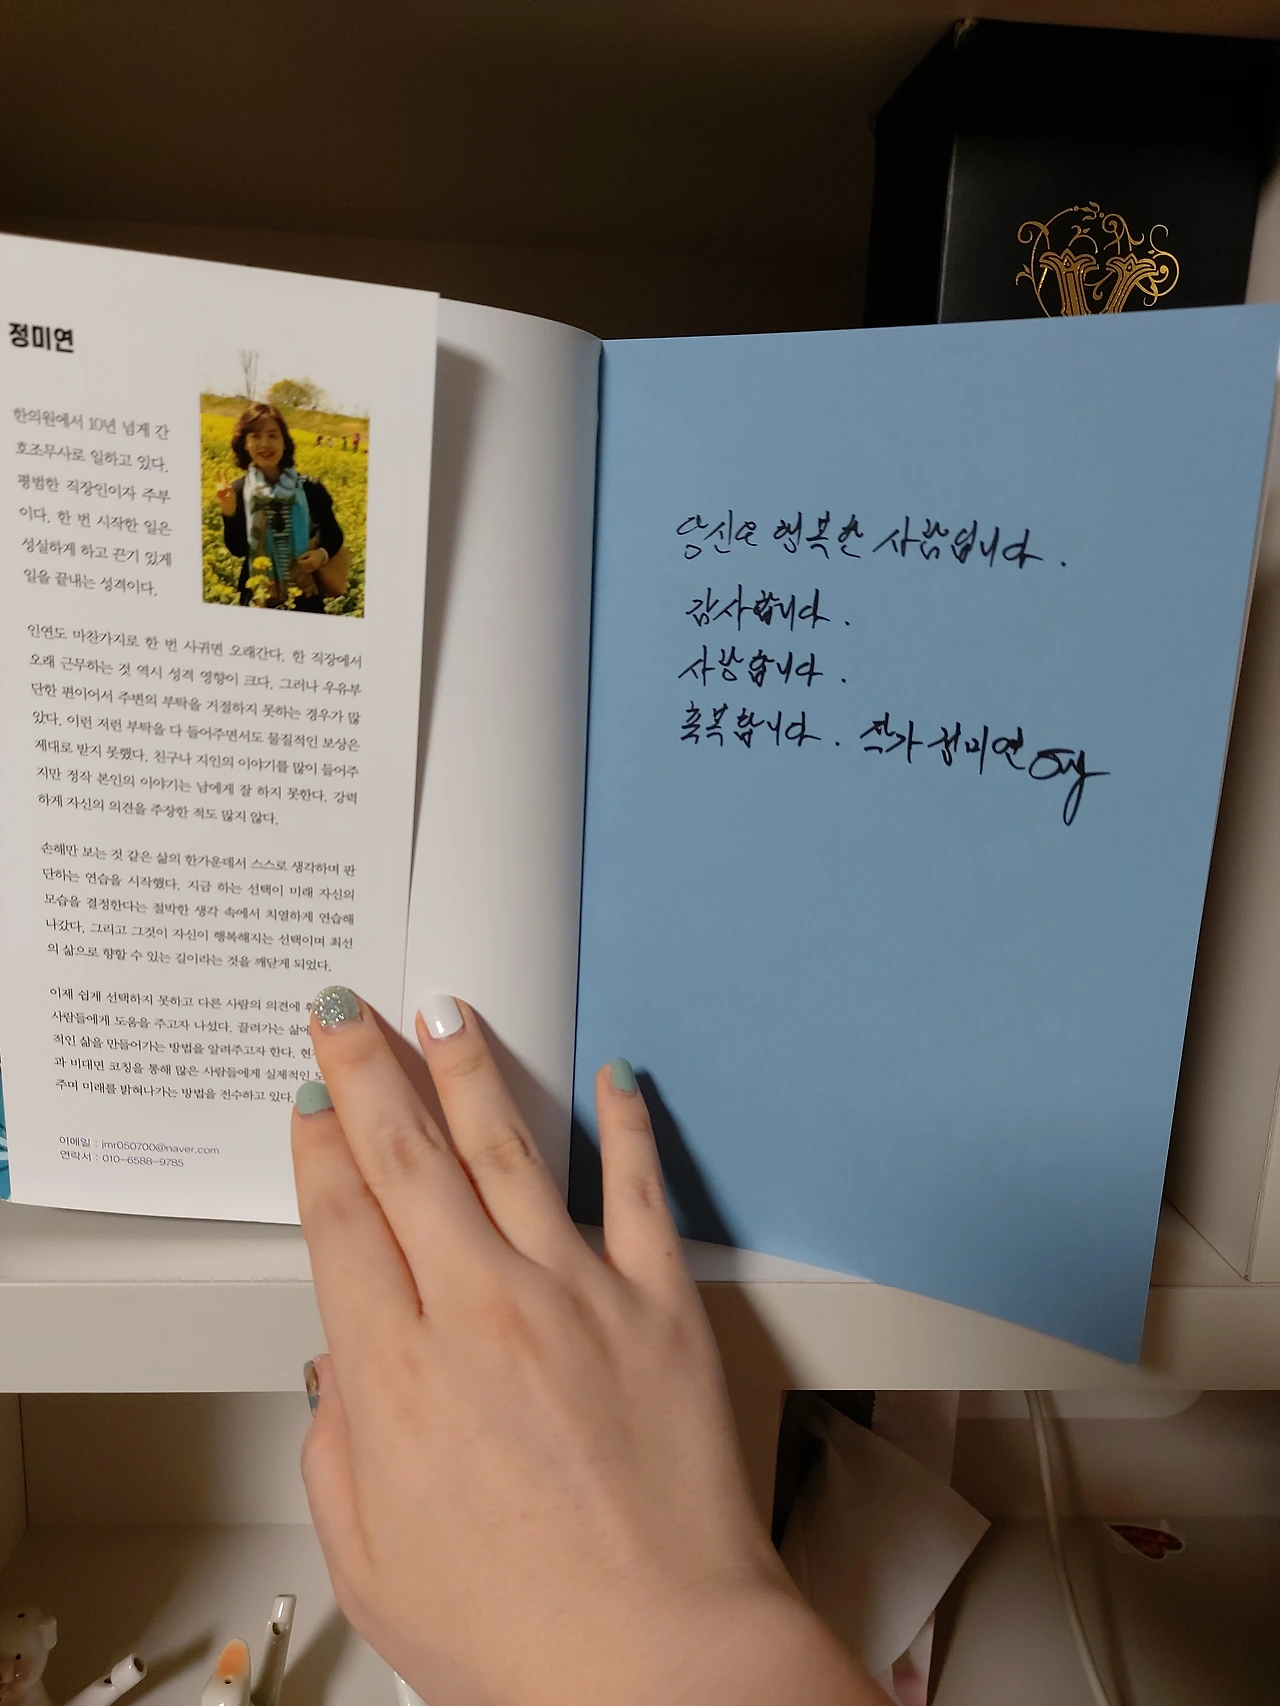 정미연
한의원에서 10년 넘게 간
호조무사로 일하고 있다.
평범한 직장인이자 주부
이다. 한 번 시작한 일은
성실하게 하고 끈기 있게
일을 끝내는 성격이다.
인연도 마찬가지로 한 번 사귀면 오래간다. 한 직장에서
오래 근무하는 것 역시 성격 영향이 크다. 그러나 우유부
단한 편이어서 주변의 부탁을 거절하지 못하는 경우가 많
았다. 이런 저런 부탁을 다 들어주면서도 물질적인 보상은
제대로 받지 못했다. 친구나 지인의 이야기를 많이 들어주
지만 정작 본인의 이야기는 남에게 잘 하지 못한다. 강력
하게 자신의 의견을 주장한 적도 많지 않다.
손해만 보는 것 같은 삶의 한가운데서 스스로 생각하며 판
단하는 연습을 시작했다. 지금 하는 선택이 미래 자신의
모습을 결정한다는 절박한 생각 속에서 치열하게 연습해
나갔다. 그리고 그것이 자신이 행복해지는 선택이며 최선
의 삶으로 향할 수 있는 길이라는 것을 깨닫게 되었다.
이제 쉽게 선택하지 못하고 다른 사람의 의견에
사람들에게 도움을 주고자 나섰다. 끌려가는 삶에
적인 삶을 만들어가는 방법을 알려주고자 한다.
과 비대면 코칭을 통해 많은 사람들에게 실제적인
주며 미래를 밝혀나가는 방법을 전수하고 있다.
이메일 : jmr050700@naver.com
연락서 : 010-6588-9785
당신은 행복한 사람입니다.
감사합니다.
사랑합니다.
축복합니다. 작가 정미연